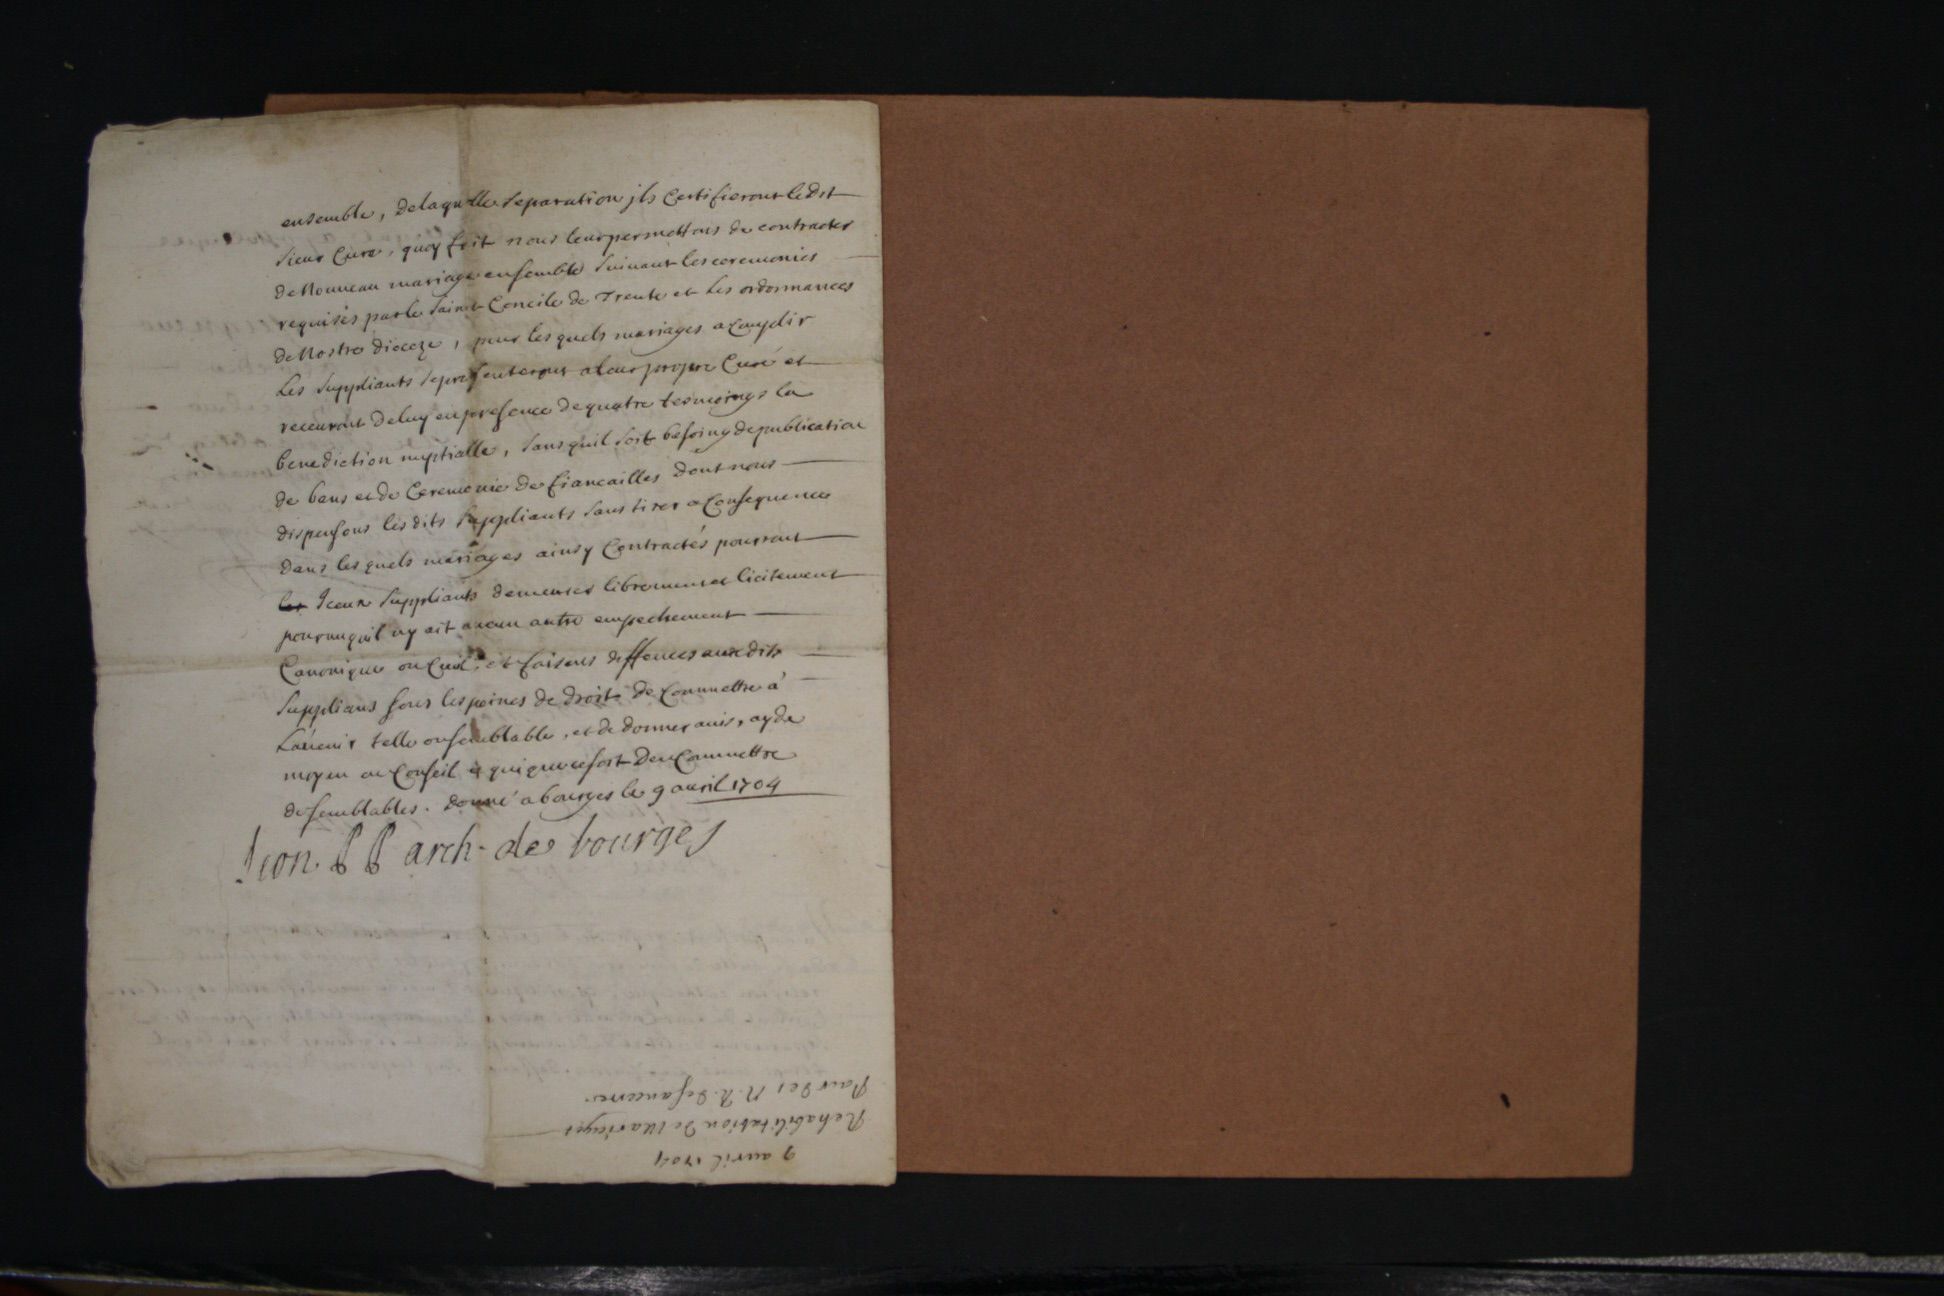 ensemble, de laquelle separation jls Certifieront ledit
sieur Curé, quoy fait nous leur permettons de contracter
de Nouveau mariage ensemble suiuant les ceremonies
requises par le Saint Concile de Trente et Les ordonnances
de Nostre dioceze, pour lesquels mariages acomplir
Les suppliants se presenteront a leur propre Curé et
receuront de luy en presence de quatre tesmoings la
benediction nuptialle, sans quil soit besoing de publication
de bans et de Ceremonie de fiancailles Dont nous
dispensons lesdits suppliants sans tirer a Consequence
dans lesquels mariages ainsy Contractés pourront
les Jceux suppliants demeurer librement et licitement
pourueu quil ny ait aucun autre empechement
Canonique ou Ciuil, et faisons deffences auxdits
supplians sous les peines de droit de Commettre à
L'auenir telle ou semblable, et de donner auis, ayde
moyen ou Conseil à qui que ce soit Den Commettre
de semblables. Donné a bourges le 9 auril 1704
Leon PP arch. de bourges
9 auril 1704
Rehabilitation de Mariages
Pour Des N. R. de sancerre